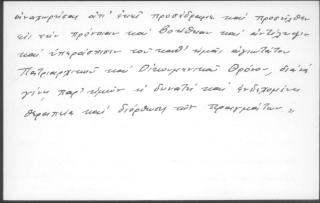 ἀναχωρήσας ἀπ' ἐκεῖ προσέδραμε καὶ προσῆλθεν
εἰς τὴν πρόνοιαν καὶ βοήθειαν καὶ ἀντίληψιν
καὶ ὑπεράσπισιν τοῦ καθ' ἡμᾶς ἁγιωτάτου
Πατριαρχικοῦ καὶ Οἰκουμενικοῦ Θρόνου, διὰ νὰ
γίνῃ παρ' ἡμῶν ἡ δυνατὴ καὶ ἐνδεχομένη
θεραπεία καὶ διόρθωσις τῶν πραγμάτων»